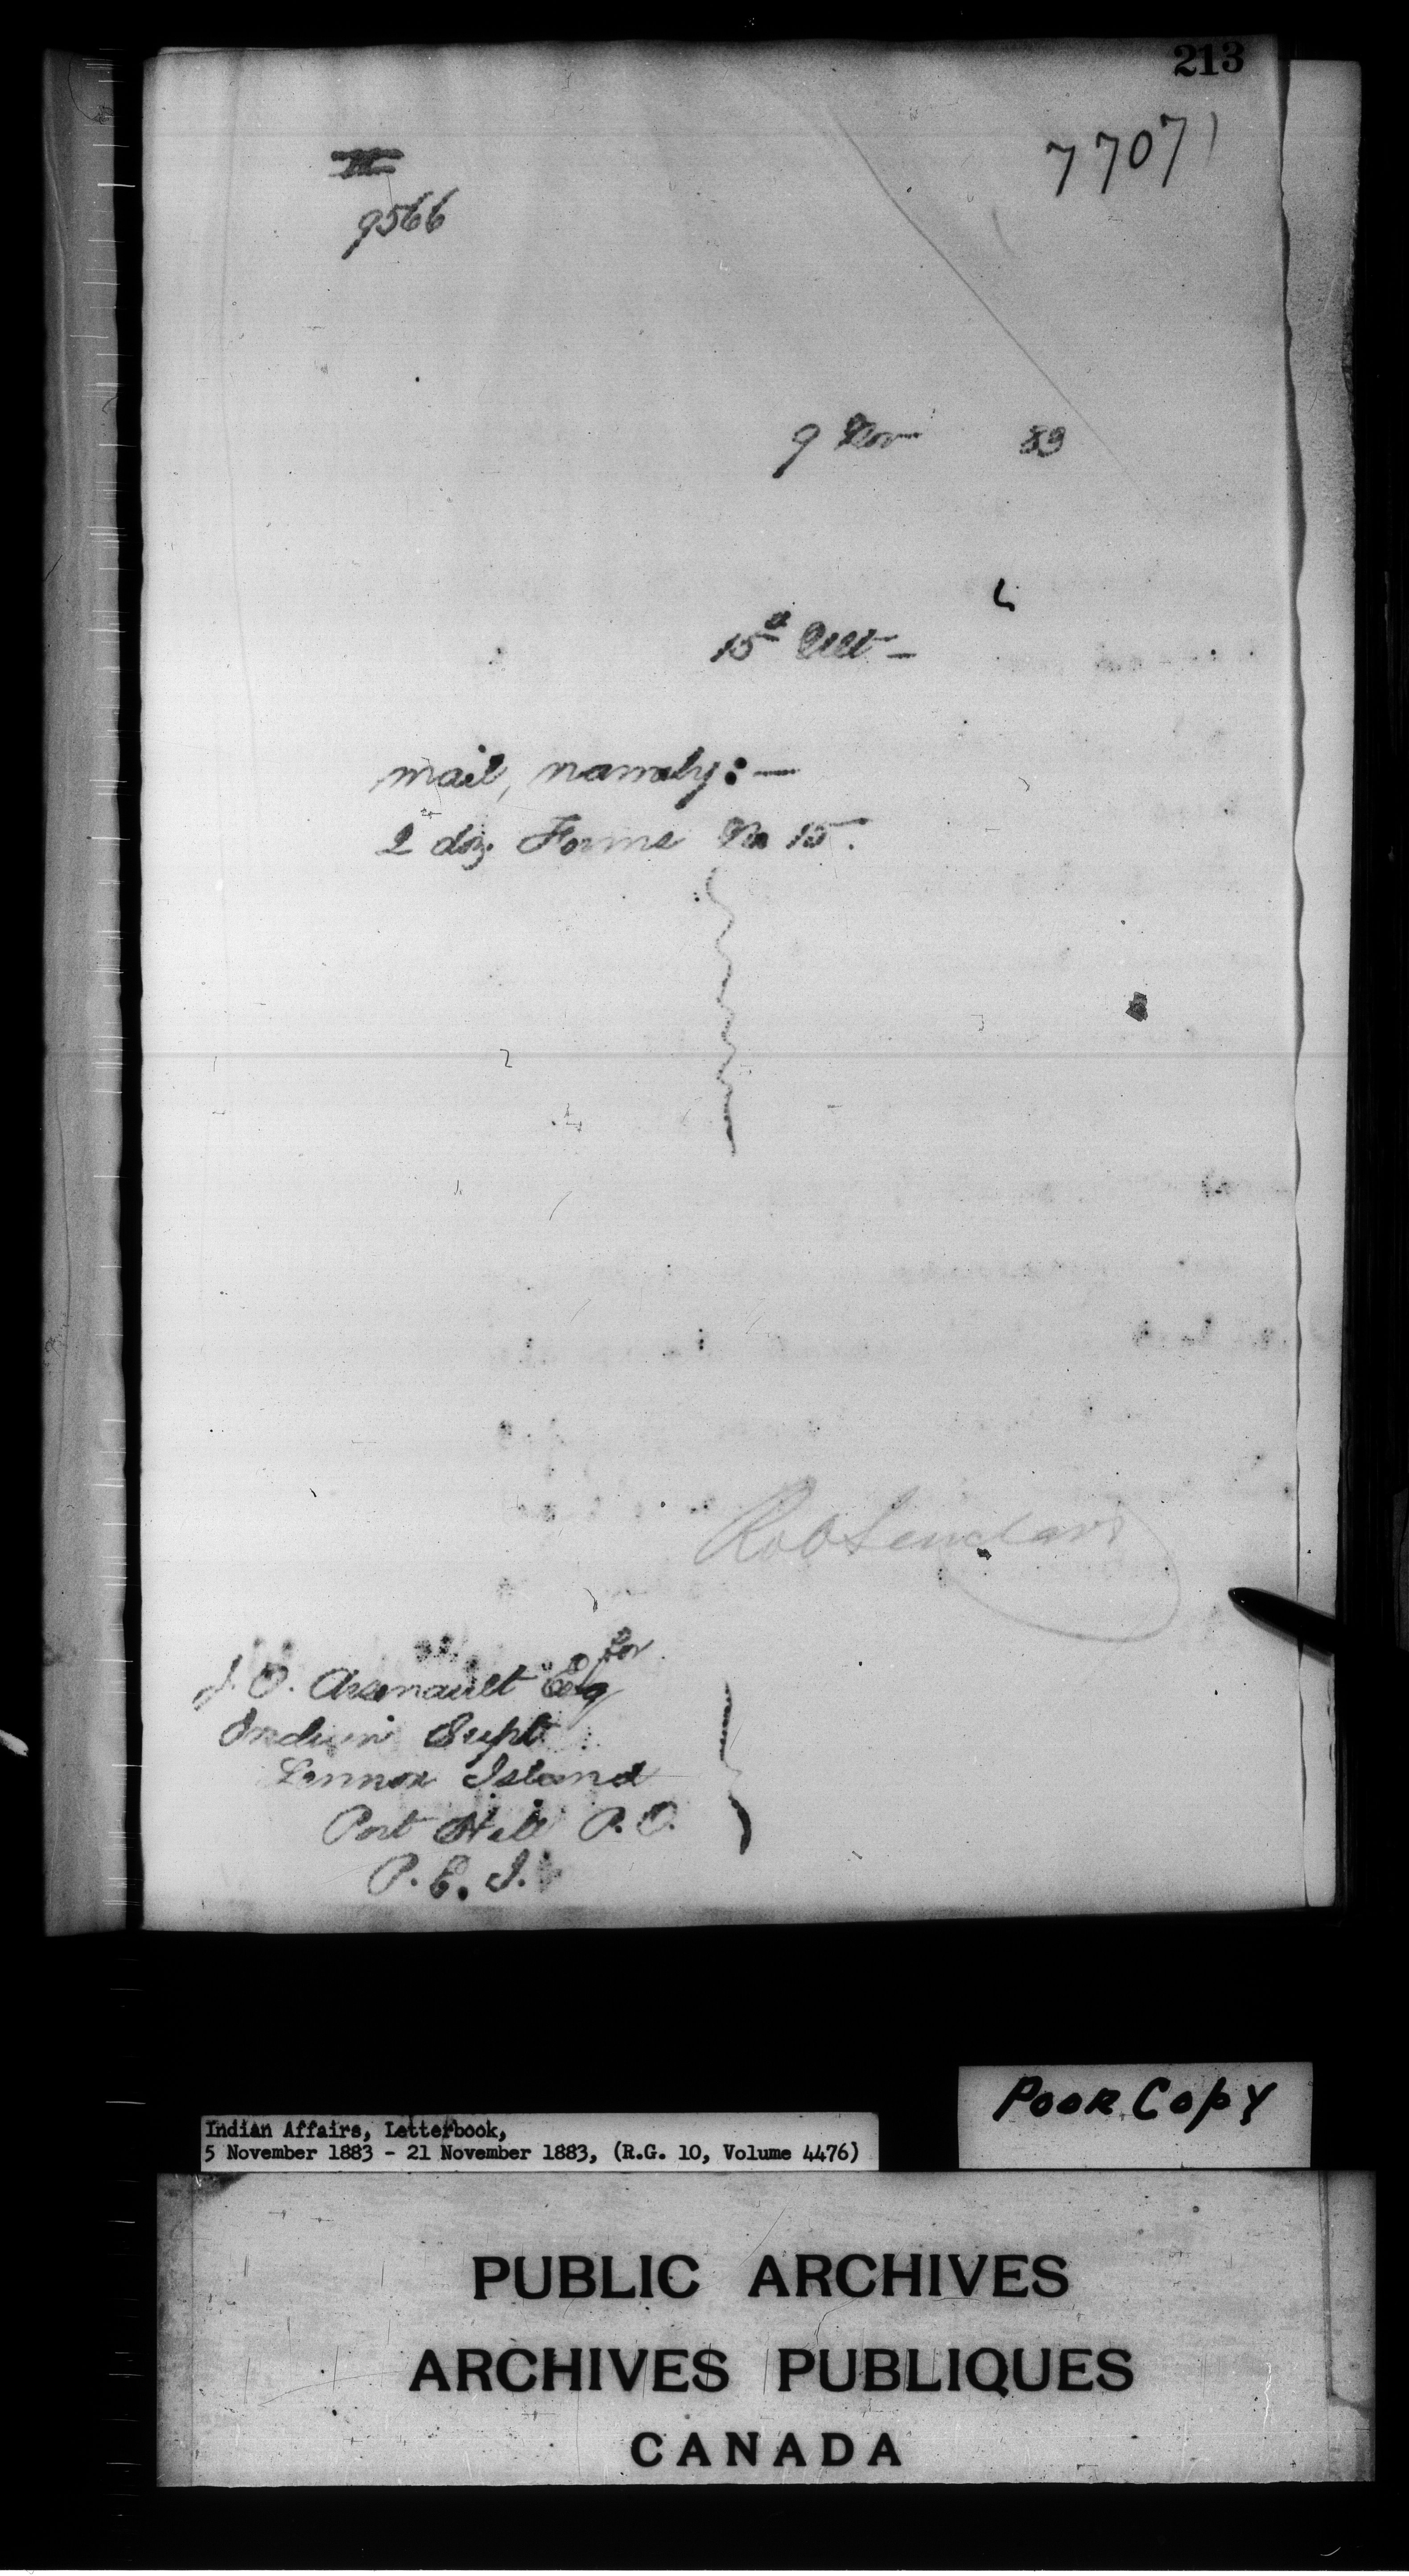 213
77071
9566
9 Nov 83
15th Ult -
mail, namely: —
2 doz. Forms No 15.
Rob Sinclair
for
J. O. Arsenault Esq
Indian Supt
Lennox Island
Port Hill P. O.
P. E. I.
Poor Copy
Indian Affairs, Letterbook,
5 November 1883 - 21 November 1883, (R.G. 10, Volume 4476)
PUBLIC ARCHIVES
ARCHIVES PUBLIQUES
CANADA